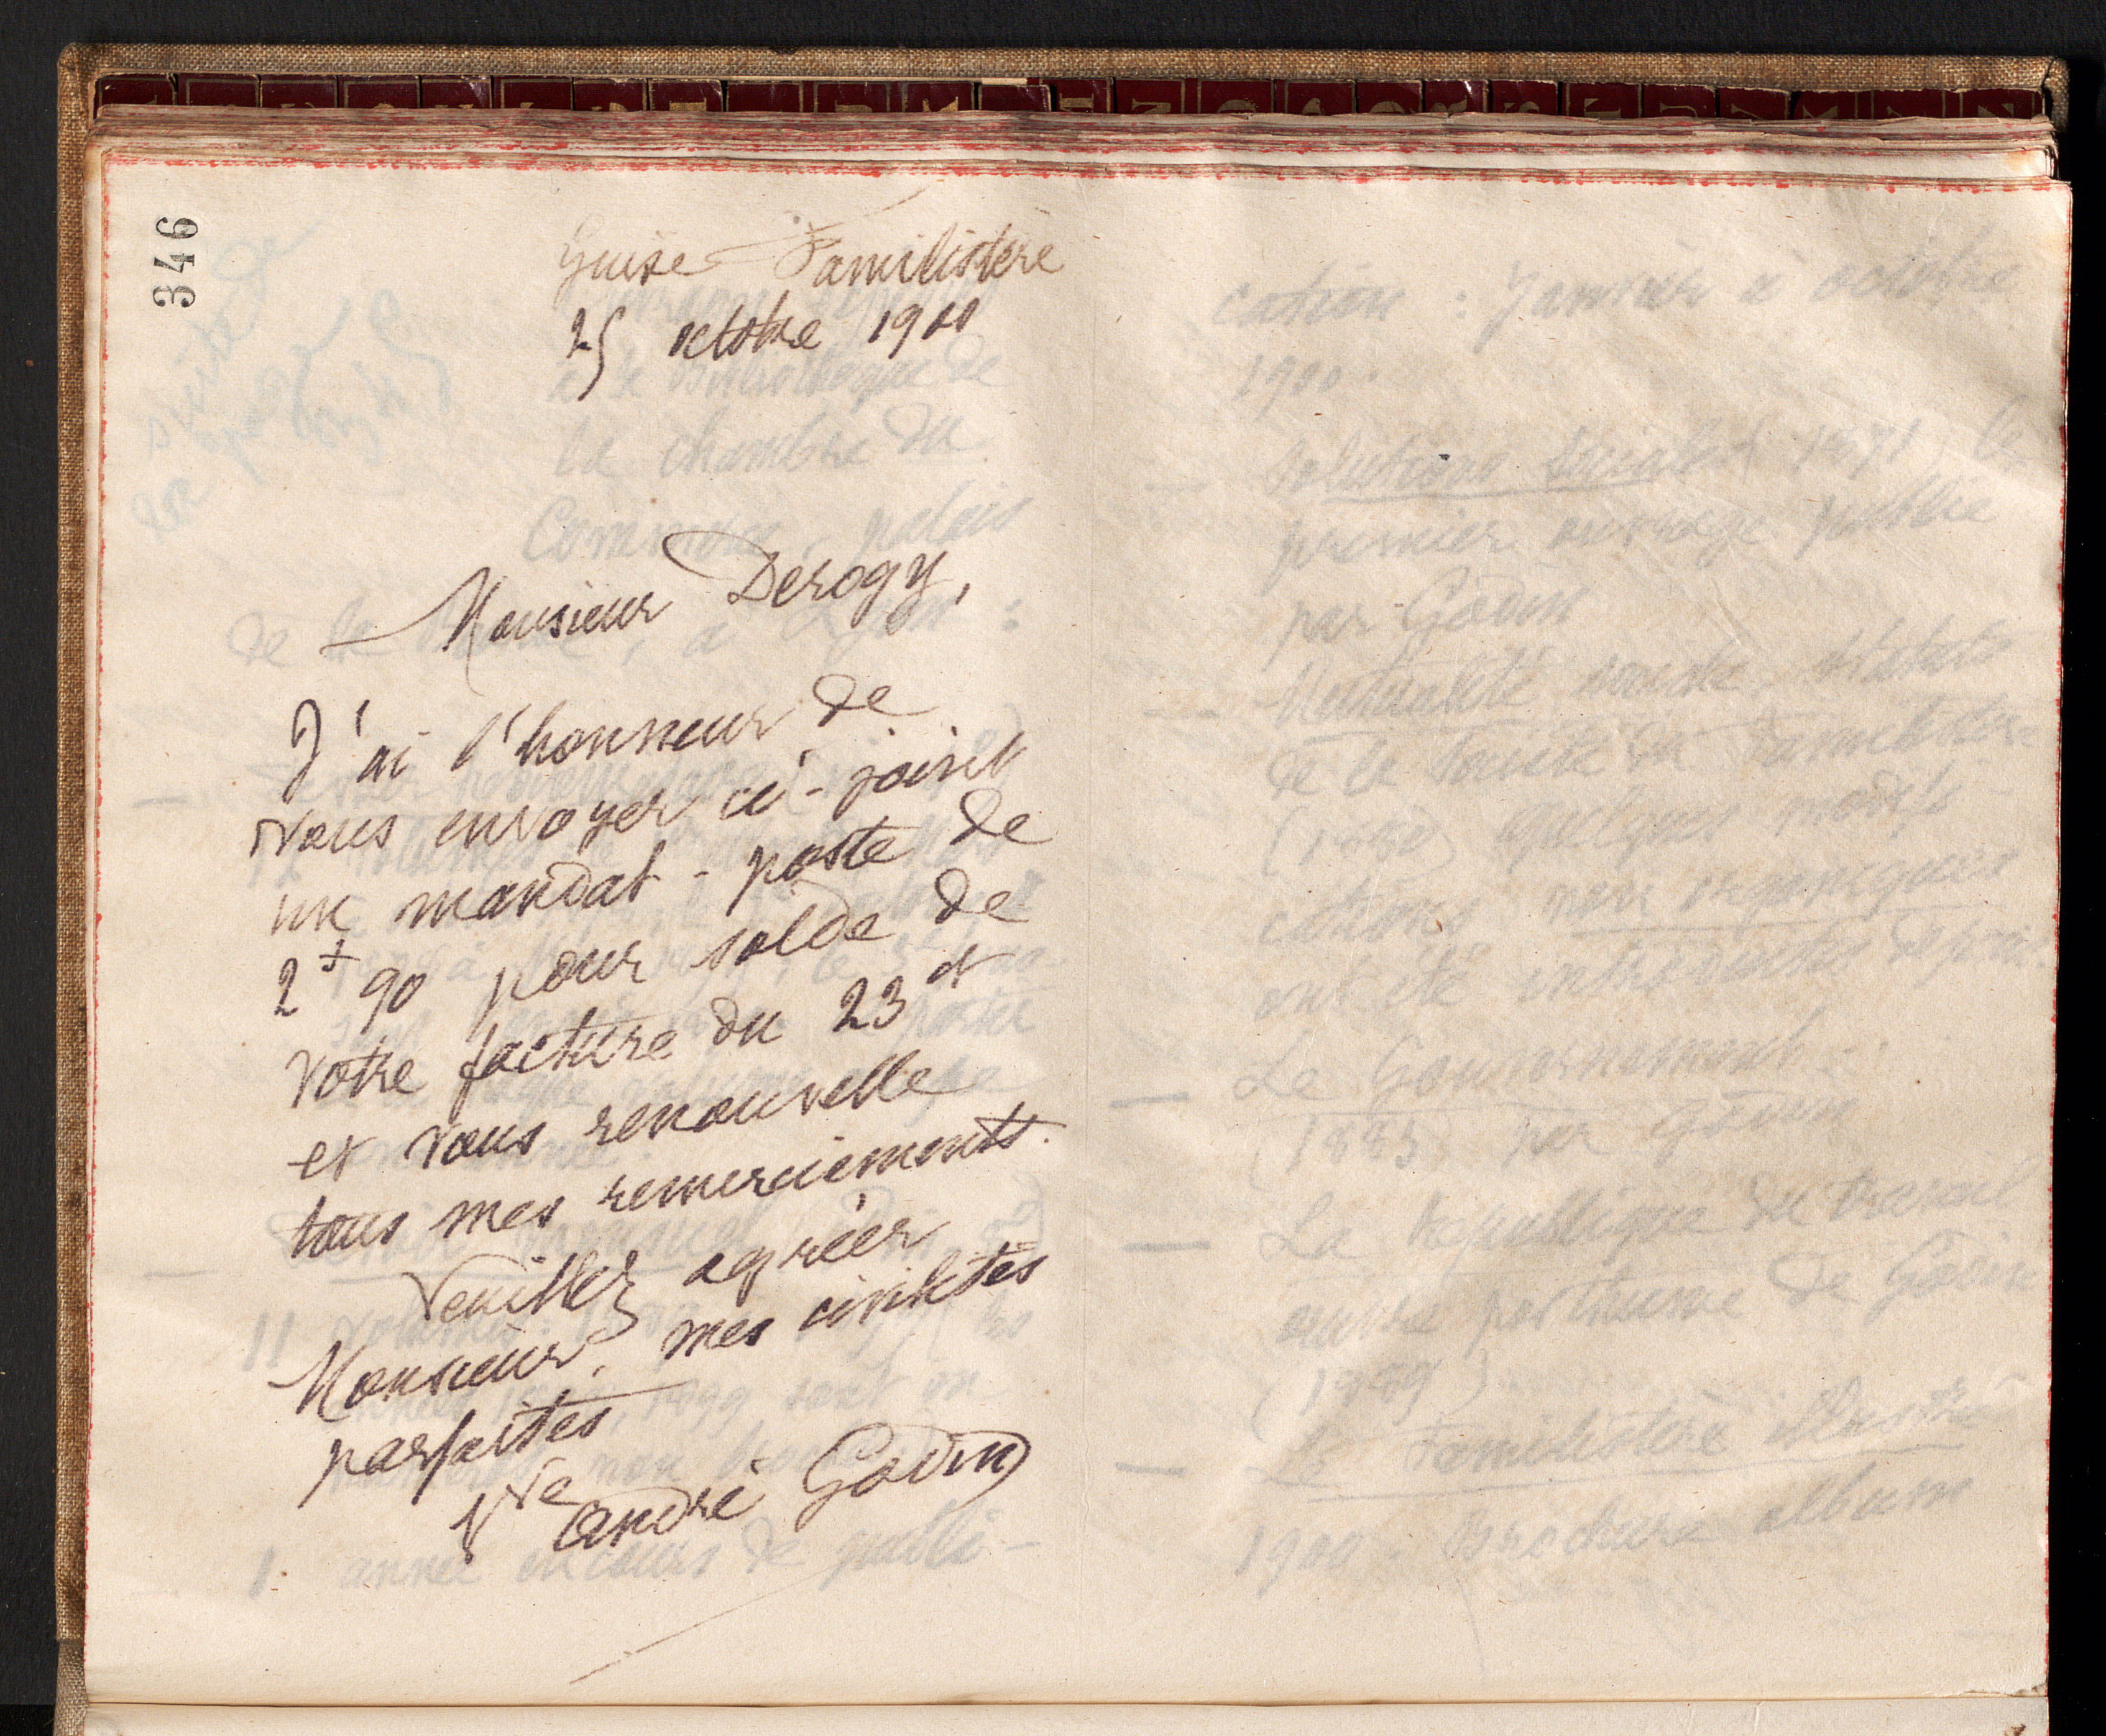 346
Guise Familistère
25 octobre 1900
Monsieur Derogy,
J'ai l'honneur de
vous envoyer ci-joint
un mandat-poste de
2f 90 pour solde de
votre facture du 23 ct
et vous renouvelle
tous mes remerciements.
Veuillez agréer
Monsieur, mes civilités
parfaites
Vve André Godin
suite de
la page
345
à la Bibliothèque de
la chambre du
Commerce, palais
de la Bourse, à Lyon :
1 année en cours de publi-
cation : Janvier à octobre
1900.
— Solutions sociales (1871) Le
premier ouvrage publié
par Godin
— Mutualité sociale statuts
de la Société du Familistère
(1880) quelques modifi-
cations non organiques
ont été introduites depuis.
— Le Gouvernement
(1883 par Godin
— La République du travail
œuvre posthume de Godin
(1889)
— Le Familistère illustré
1900. Brochure album